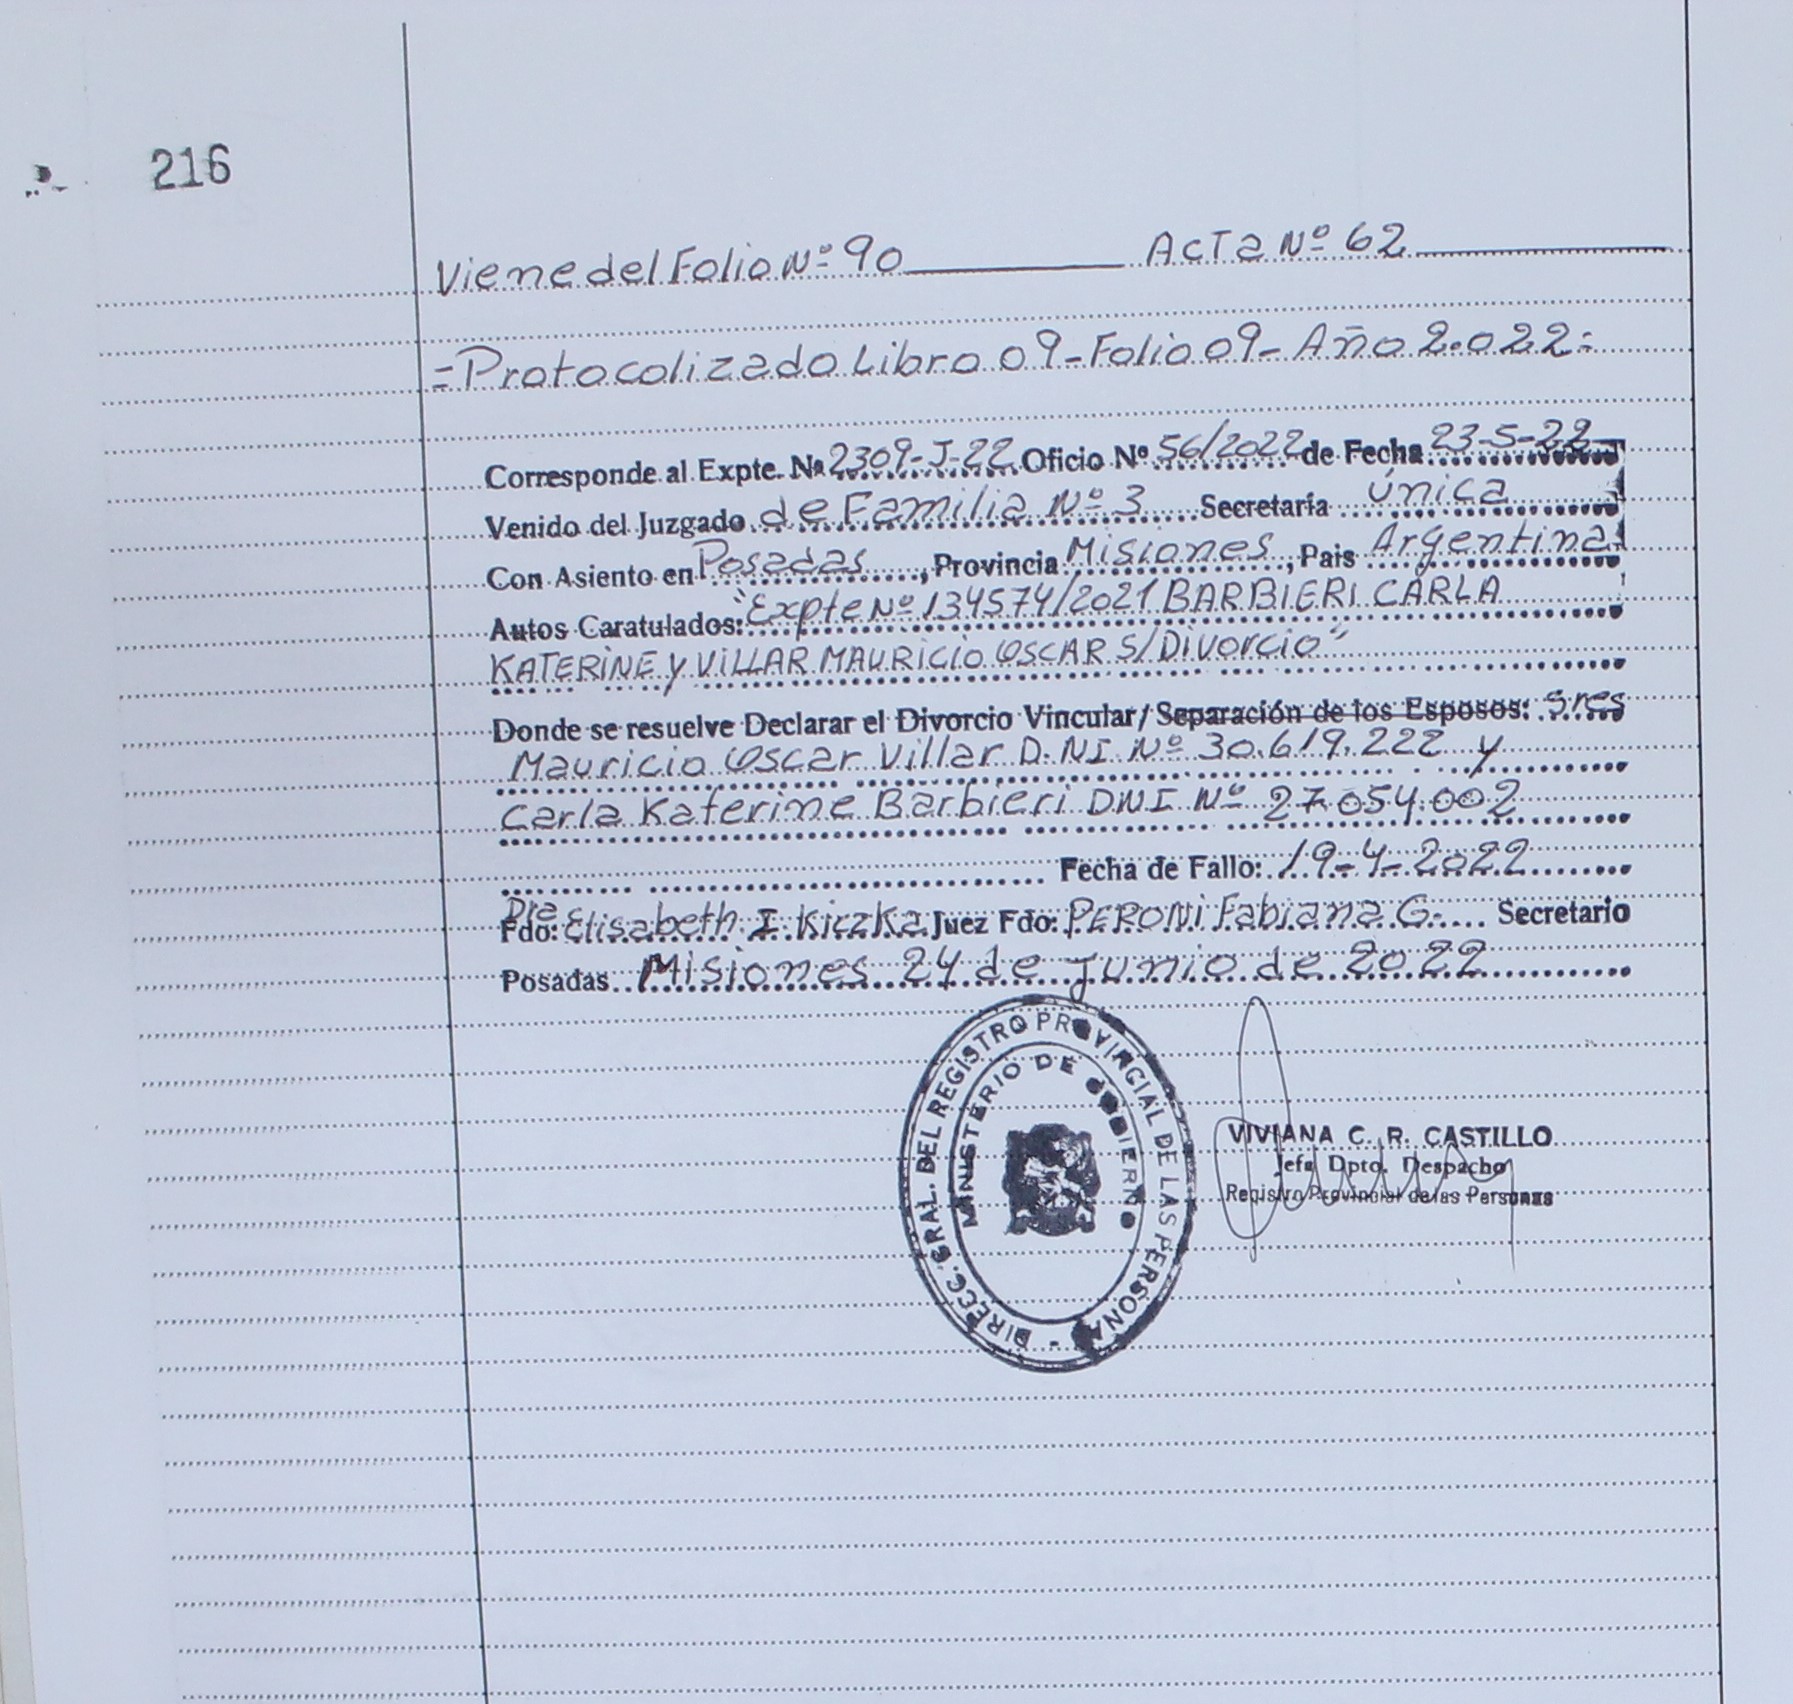 216
Viene del Folio Nº 90 Acta Nº 62
=Protocolizado Libro 09-Folio 09- Año 2.022=
Corresponde al Expte. Nº 2309-J-22 Oficio Nº 56/2022 de Fecha 23-5-22
Venido del Juzgado de Familia Nº 3 Secretaría única
Con Asiento en Posadas, Provincia Misiones, Pais Argentina
Autos Caratulados: "Expte Nº 134574/2021 BARBIERI CARLA
KATERINE Y VILLAR MAURICIO OSCAR S/Divorcio"
Donde se resuelve Declarar el Divorcio Vincular/Separación de los Esposos: Sres
Mauricio Oscar Villar D.NI. Nº 30.619.222 y
Carla Katerine Barbieri DNI Nº 27.054.002
Fecha de Fallo: 19-4-2022
Fdo: Dra Elisabeth I. Kiczka Juez Fdo: PERONI Fabiana G. Secretario
Posadas Misiones 24 de junio de 2022
DIRECC. GRAL. DEL REGISTRO PROVINCIAL DE LAS PERSONAS
MINISTERIO DE GOBIERNO
VIVIANA C. R. CASTILLO
Jefa Dpto. Despacho
Registro Provincial de las Personas